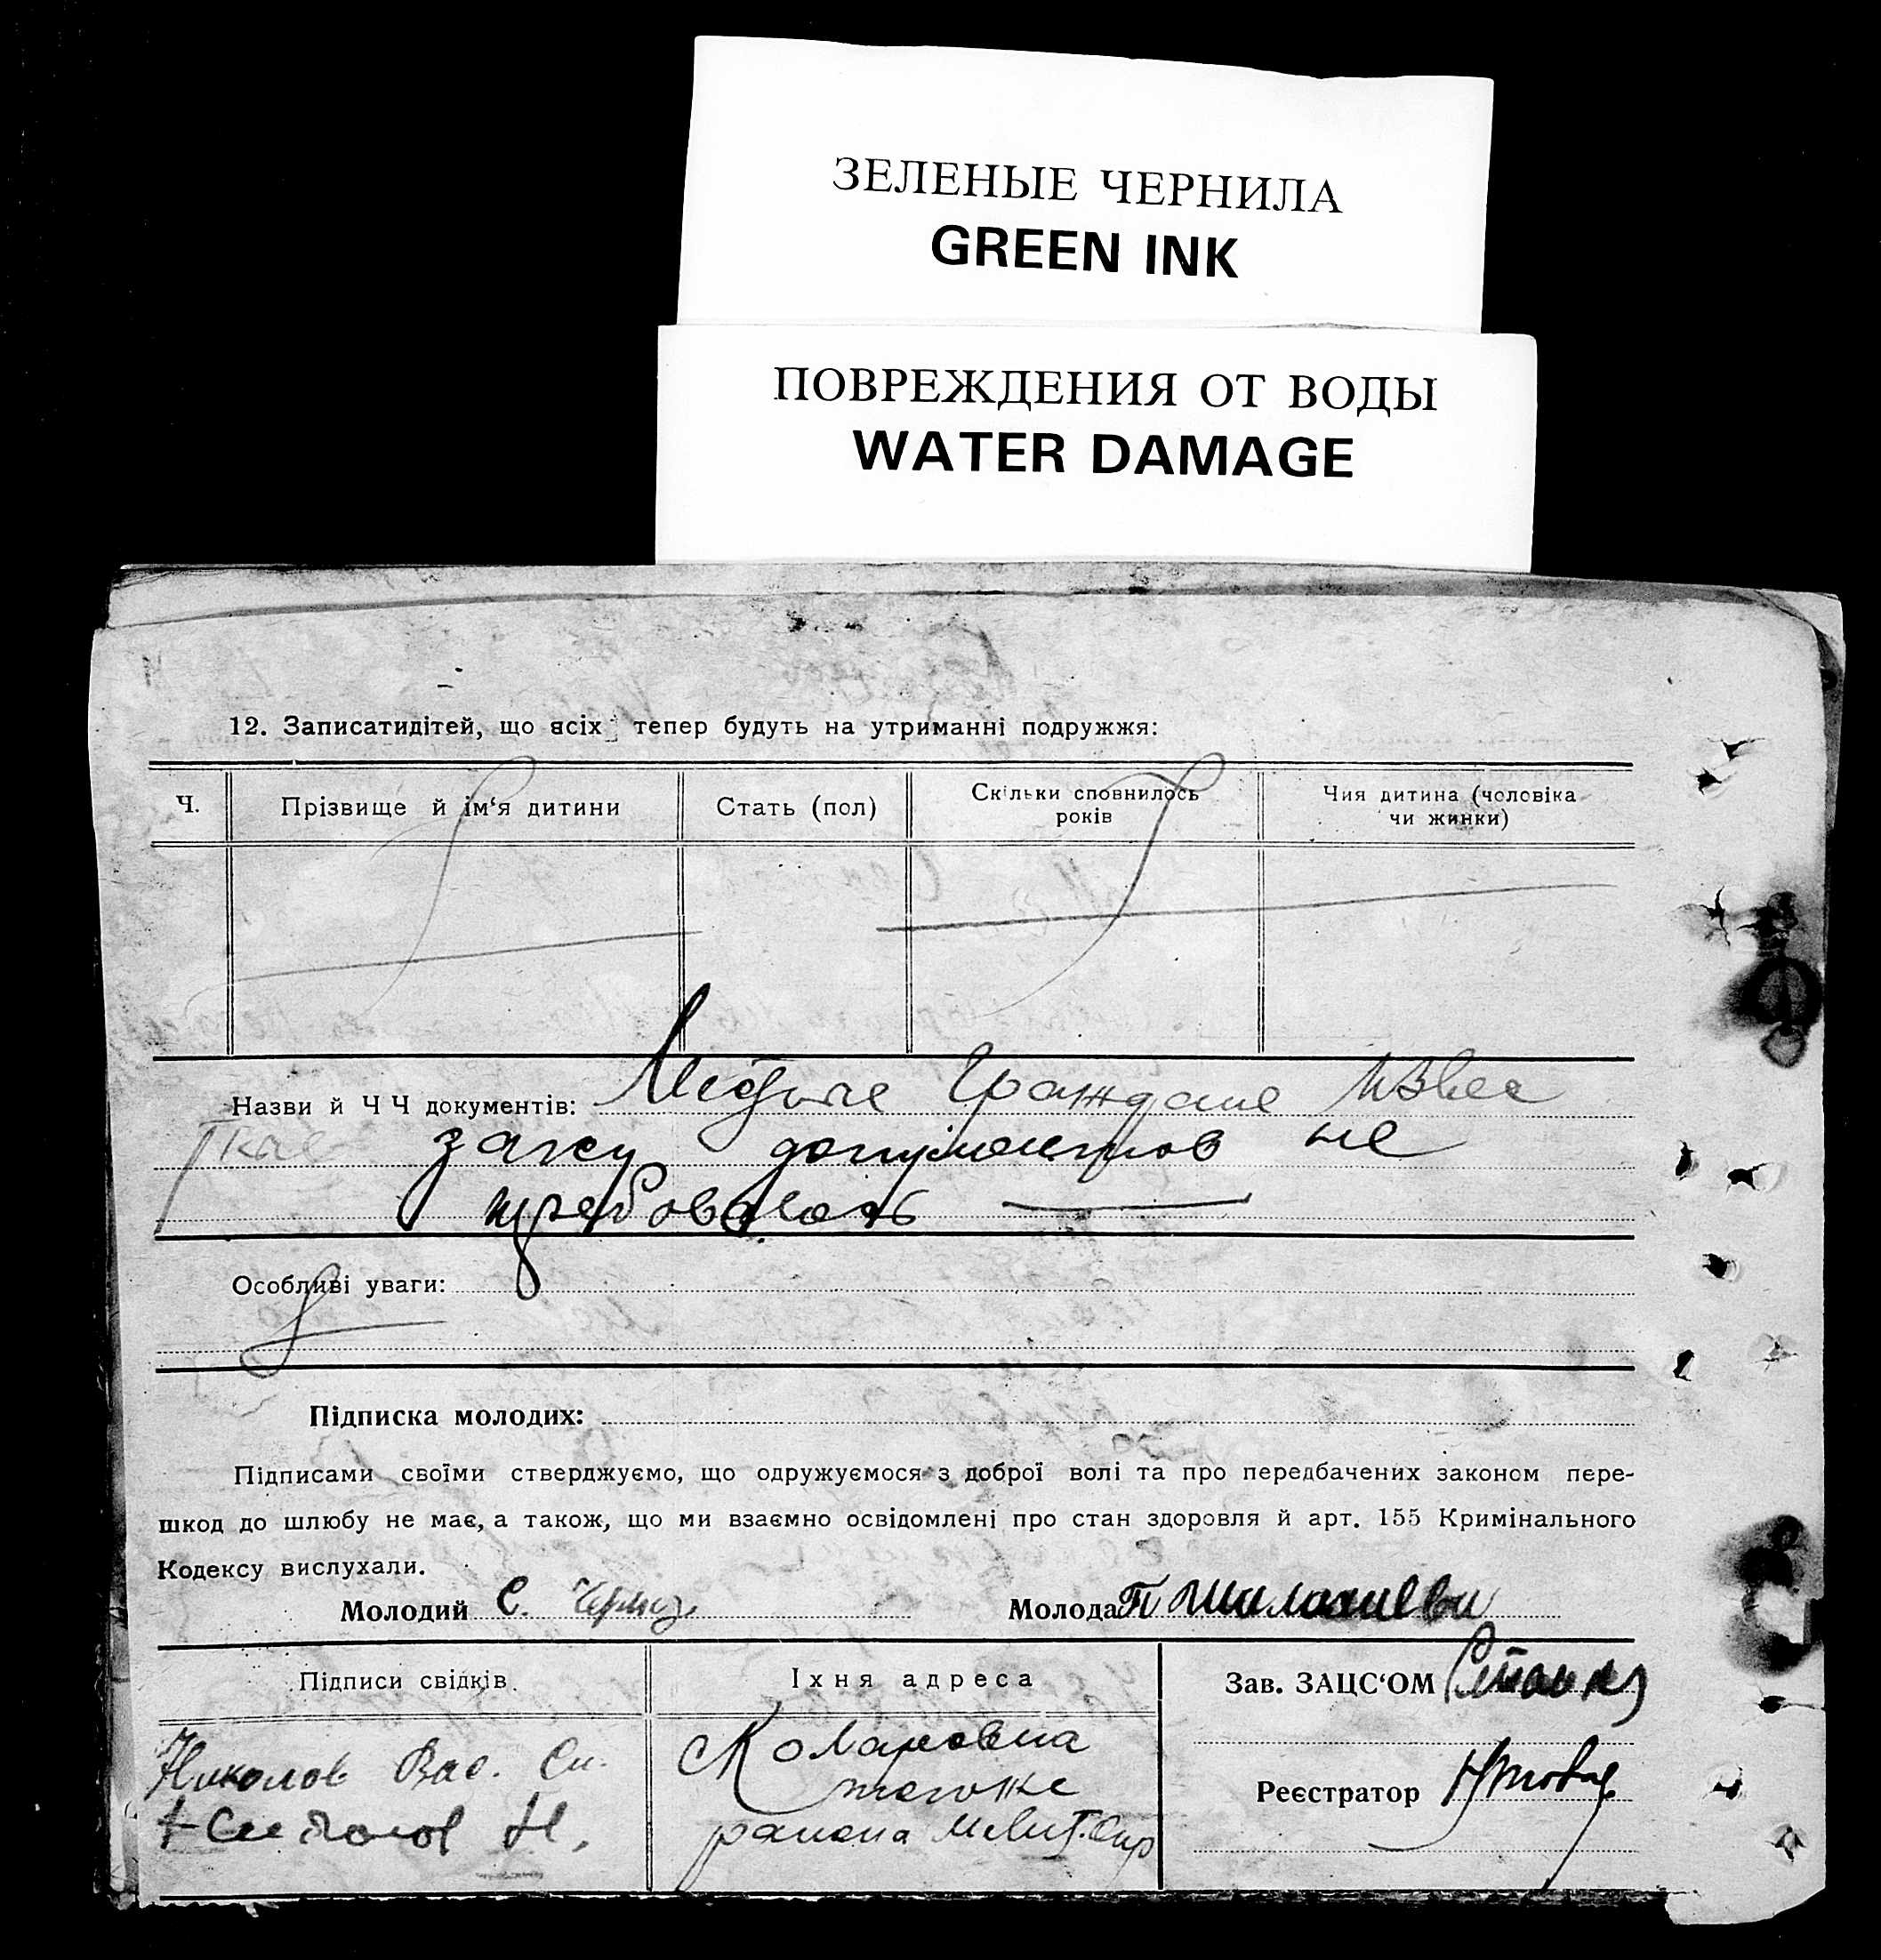 ЗЕЛЕНЫЕ ЧЕРНИЛА
GREEN INK
ПОВРЕЖДЕНИЯ ОТ ВОДЫ
WATER DAMAGE
12. Записатидітей, що всіх тепер будуть на утриманні подружжя:
Ч. Прізвище й ім‘я дитини Стать (пол) Скільки сповнилось років Чия дитина (чоловіка чи жинки)
Назви й ЧЧ документів: Местные Граждане Извес
ткые загсу документов не
требовалось
Особливі уваги:
Підписка молодих:
Підписами своїми стверджуємо, що одружуємося з доброї волі та про передбачених законом пере-
шкод до шлюбу не має, а також, що ми взаємно освідомлені про стан здоровля й арт. 155 Кримінального
Кодексу вислухали.
Молодий С. Молода П
Підписи свідків Їхня адреса Зав. ЗАЦС‘ОМ
Николов Вас. Комаровка
тогоже
Н. района
Реєстратор